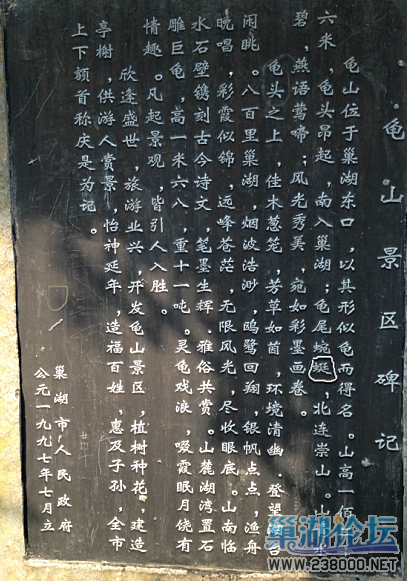 龟山景区碑记
龟山位于巢湖东口，以其形似龟而得名。山高一佰
六米，龟头昂起，南入巢湖；龟尾蜿蜒，北连崇山。山
碧，燕语莺啼；风光秀美，宛如彩墨画卷。
龟头之上，佳木葱茏，芳草如茵，环境清幽。登望湖亭
闲眺。八百里巢湖，烟波浩渺，鸥鹭回翔，银帆点点，渔舟
晚唱，彩霞似锦，远峰苍茫，无限风光，尽收眼底。山南临
水石壁镌刻古今诗文，笔墨生辉，雅俗共赏。山麓湖湾置石
雕巨龟，高一米六八，重十一吨。灵龟戏浪，啜霞眠月饶有
情趣。凡起景观，皆引人入胜。
欣逢盛世，旅游业兴，开发龟山景区，植树种花，建造
亭榭，供游人赏景，怡神延年，造福百姓，惠及子孙，全市
上下额首称庆是为记。
巢湖市人民政府
公元一九九七年七月立
巢湖论坛
www.238000.net